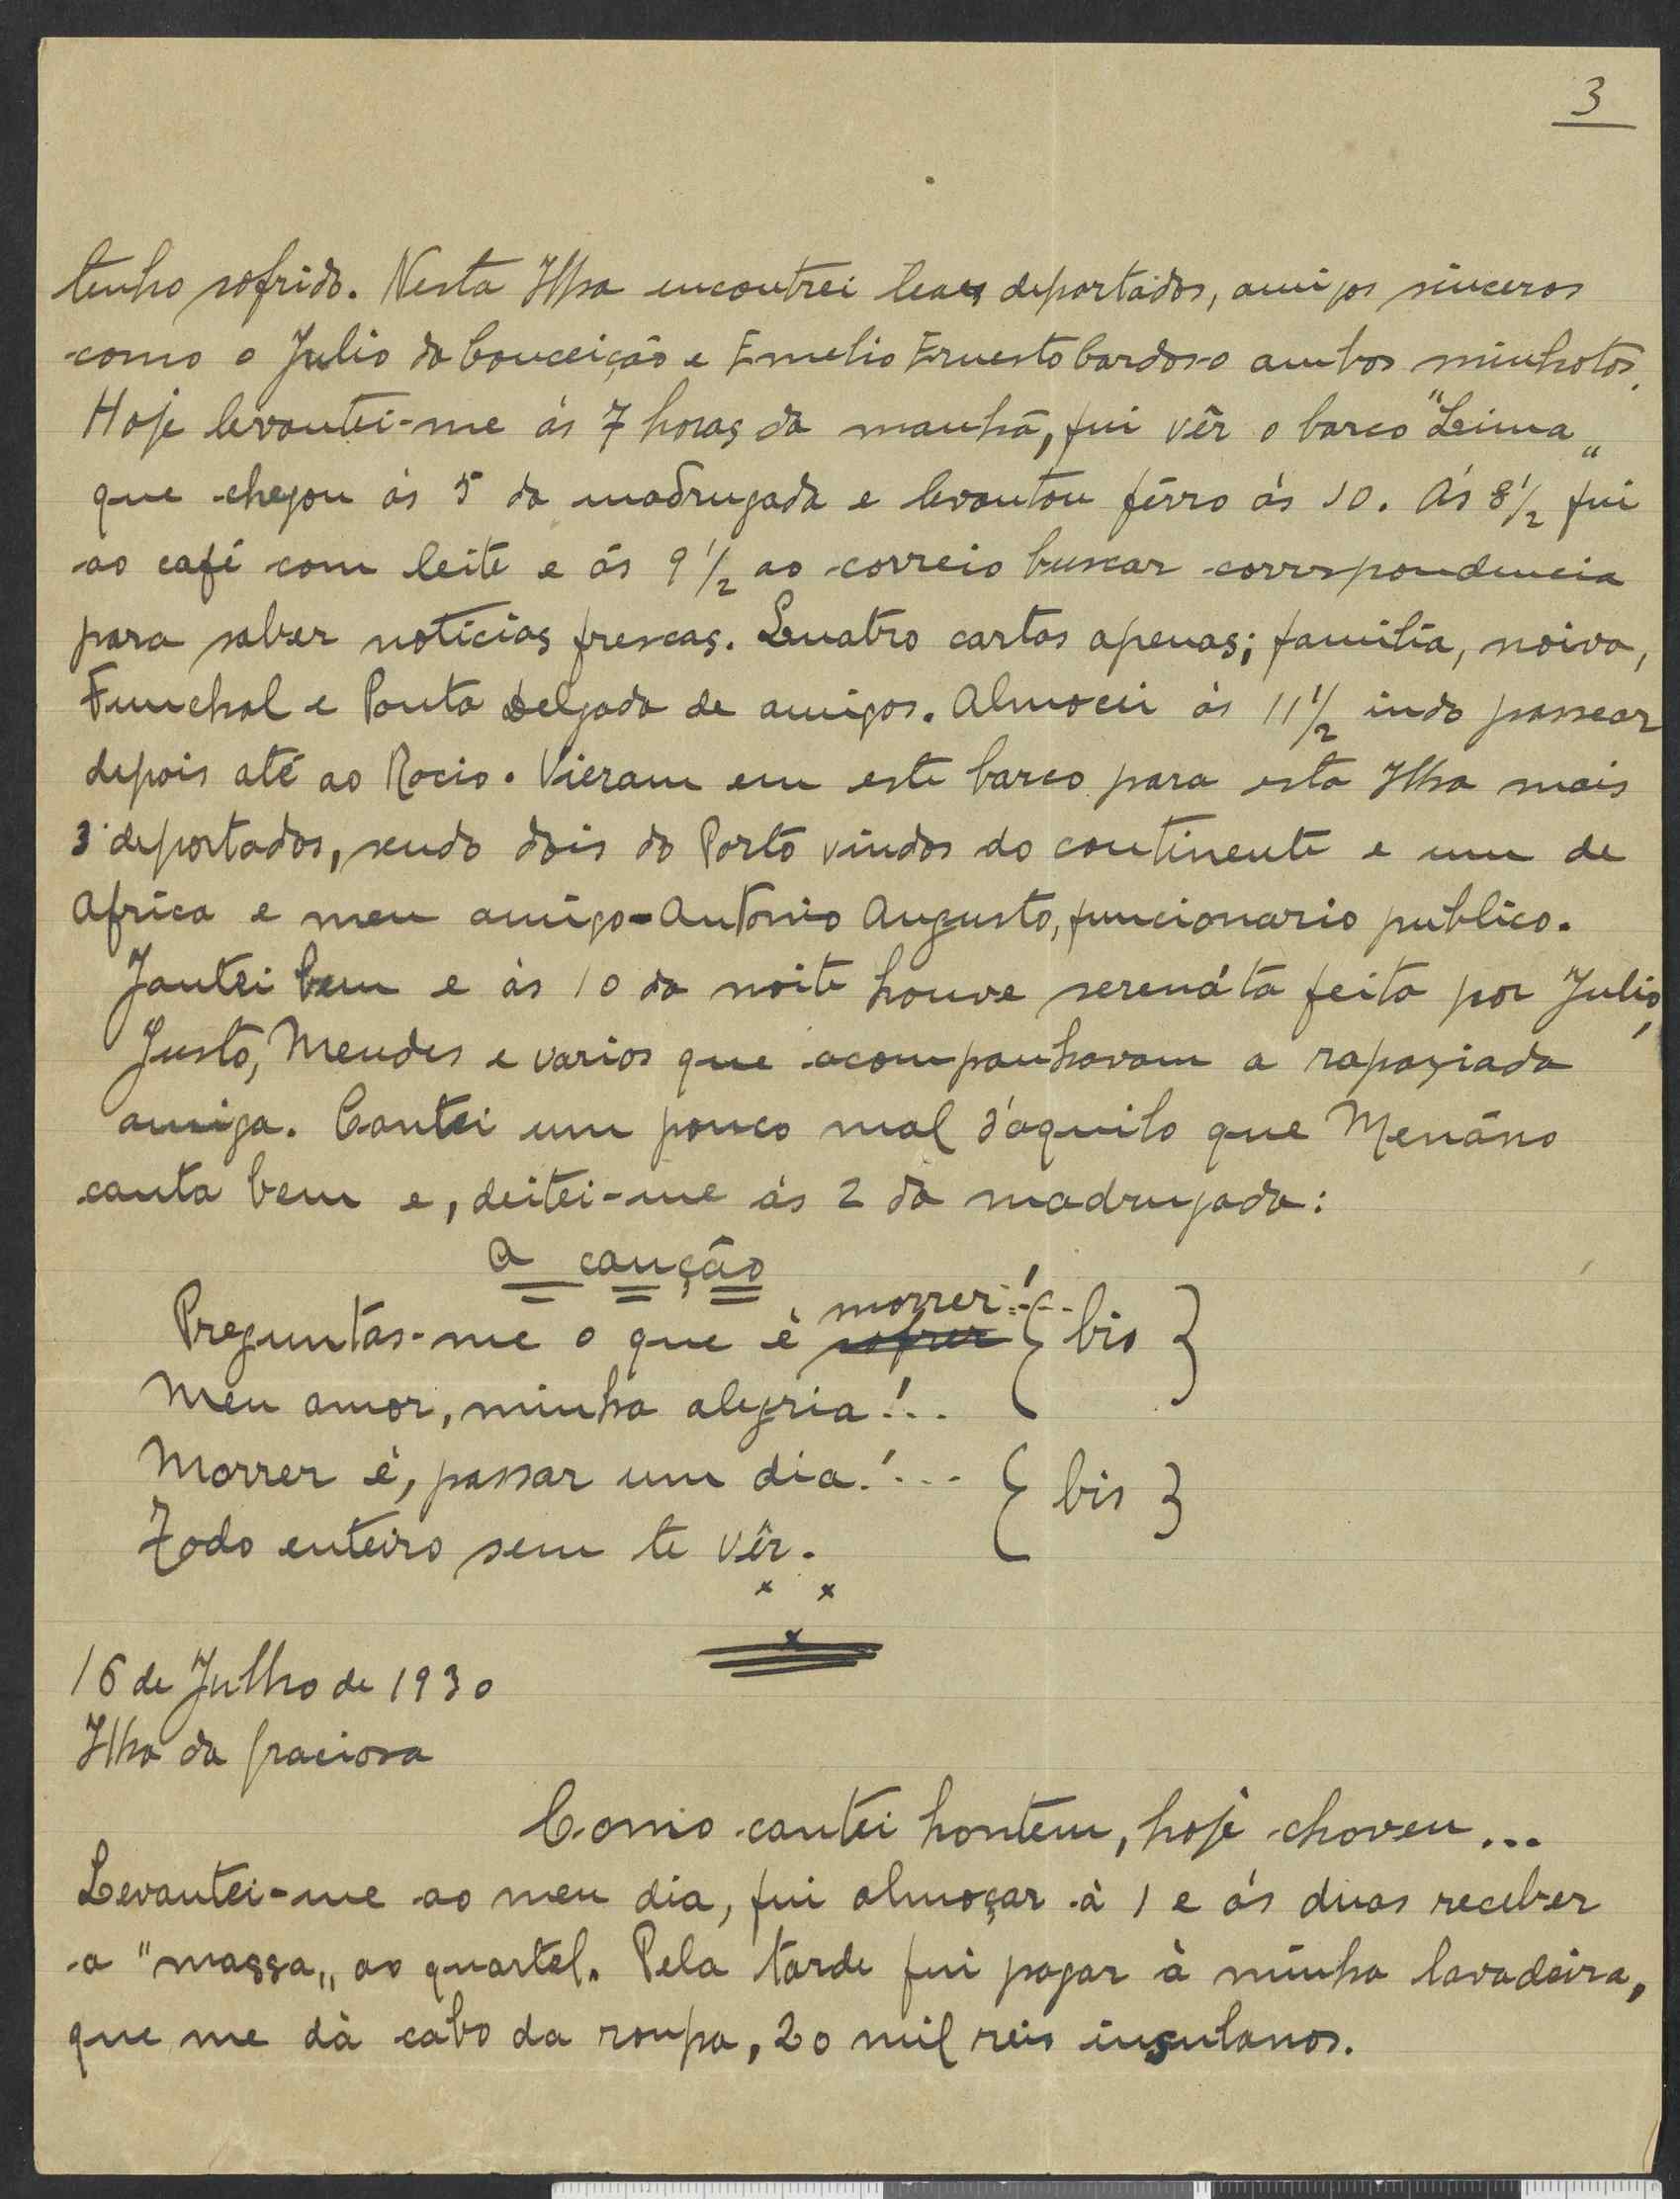 3
tenho sofrido. Nesta Ilha encontrei leaes deportados, amigos sinceros
como o Julio da Conceição e Emelio Ernesto Cardoso ambos minhotos.
Hoje levantei-me ás 7 horas da manhã, fui vêr o barco "Lima"
que chegou ás 5 da madrugada e levantou férro ás 10. Ás 8 1/2 fui
ao café com leite e ás 9 1/2 ao correio buscar correspondencia
para saber noticias frescas. Quatro cartas apenas; familia, noiva,
Funchal e Ponta Delgada de amigos. Almocei ás 11 1/2 indo passear
depois até ao Rocio. Vieram em este barco para esta Ilha mais
3 deportados, sendo dois do Porto vindos do continente e um de
Africa e meu amigo-Antonio Augusto, funcionario publico.
Jantei bem e ás 10 da noite houve serenáta feita por Julio,
Justo, Mendes e varios que acompanhavam a rapaziada
amiga. Cantei um pouco mal d'aquilo que Menâno
canta bem e, deitei-me ás 2 da madrugada:
A canção
Preguntas-me o que é sofrer morrer!... { bis }
Meu amor, minha alegria!...
Morrer é, passar um dia!... { bis }
Todo enteiro sem te vêr.
x x
x
16 de Julho de 1930
Ilha da Graciosa
Como cantei hontem, hoje choveu...
Levantei-me ao meu dia, fui almoçar á 1 e ás duas receber
a "massa" ao quartel. Pela tarde fui pagar à minha lavadeira,
que me dá cabo da roupa, 20 mil reis insulanos.